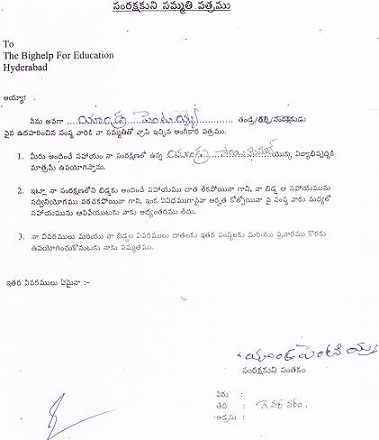 సంరక్షకుని సమ్మతి పత్రము
To
The Bighelp For Education
Hyderabad
అయ్యా!
నేను అనగా యాండ్ర పెంటయ్య తండ్రి/తల్లి/సంరక్షకుడు
పైన ఉదహరించిన సంస్థ వారికి నా సమ్మతితో వ్రాసి ఇచ్చిన అంగీకార పత్రము.
1. మీరు అందించే సహాయం నా సంరక్షణలో ఉన్న యాండ్ర యొక్క విద్యాభివృద్ధికి
మాత్రమే ఉపయోగిస్తాను.
2. ఇట్లా నా సంరక్షణలోని బిడ్డకు అందించే సహాయము దాత లేకపోయినా గాని, నా బిడ్డ ఆ సహాయమును
సద్వినియోగము పరచకపోయినా గాని, ఇంక ఏవిధముగానైనా అర్హత కోల్పోయినా పై సంస్థ వారు మధ్యలో
సహాయమును ఆపివేయుటకు నాకు అభ్యంతరము లేదు.
3. నా వివరములు మరియు నా బిడ్డల వివరములు దాతలకు ఇతర సంస్థలకు మరియు ప్రచారము కొరకు
ఉపయోగించుకొనుటకు నాకు సమ్మతము.
ఇతర వివరములు ఏమైనా :-
యాండ్ర పెంటయ్య
సంరక్షకుని సంతకం
పేరు :
తేది :
అడ్రసు :